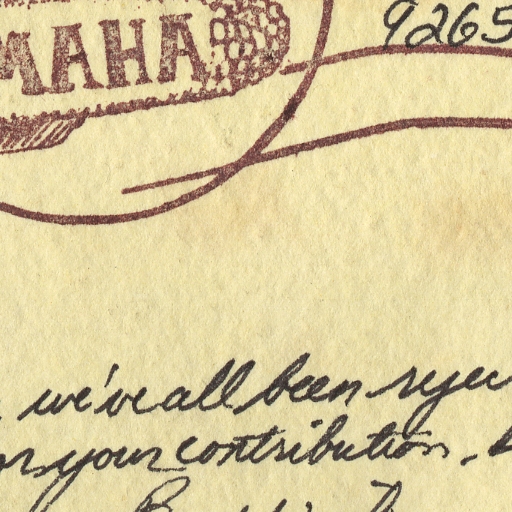 MAHA
9265
we've all been
your contribution.